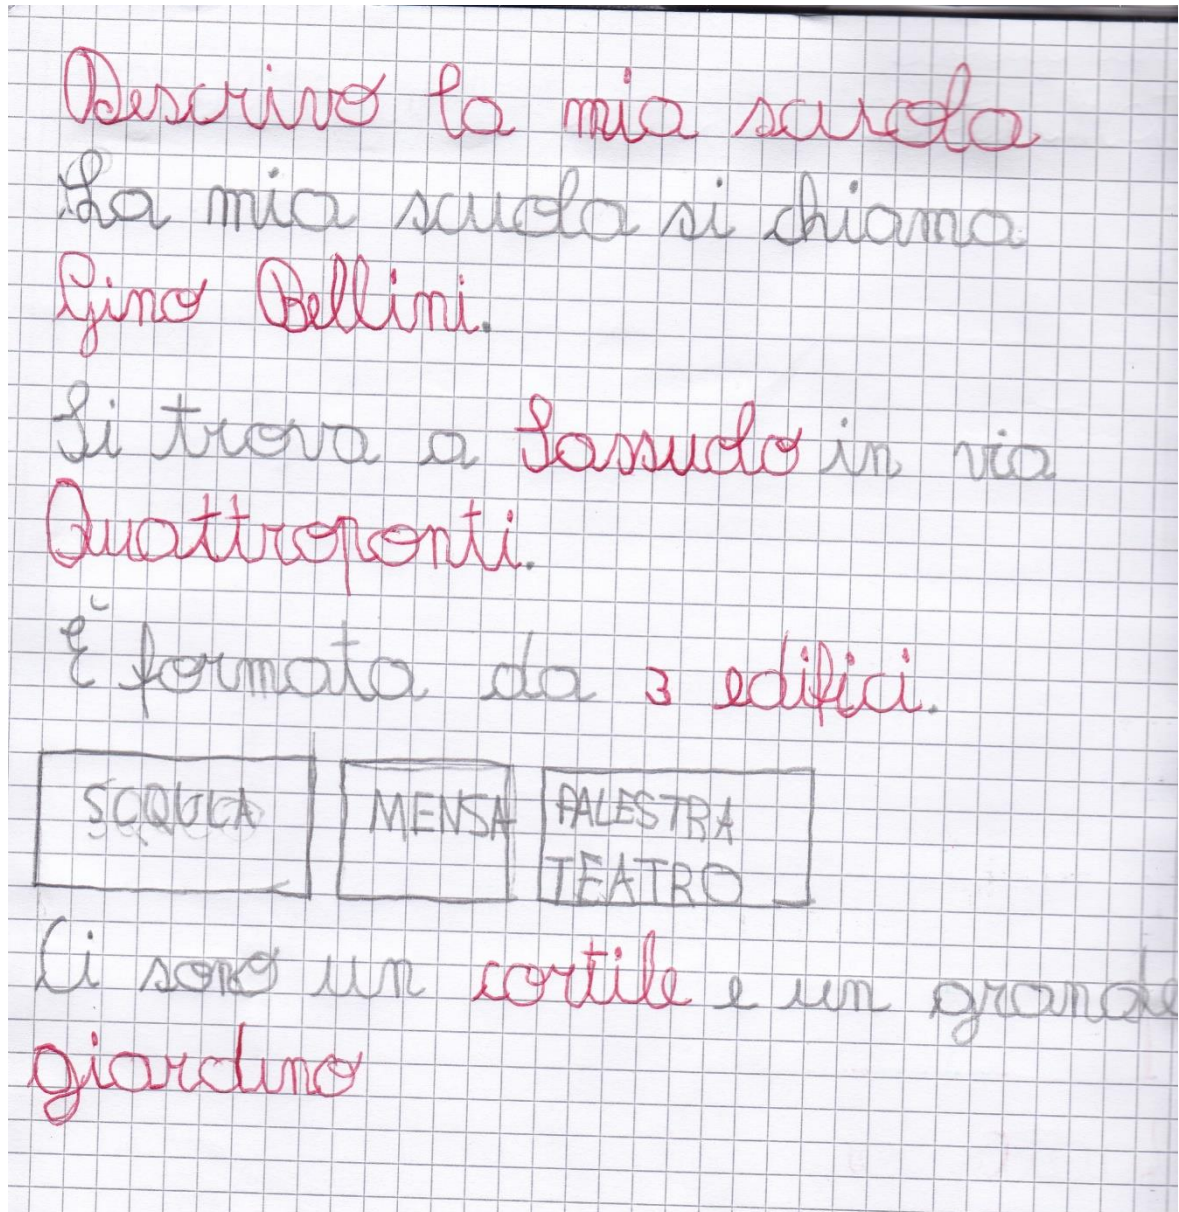 Descrivo la mia scuola
La mia scuola si chiama
Gino Bellini.
Si trova a Sassudo in via
Quattroponti.
È formata da 3 edifici.
SCUOLA MENSA PALESTRA
TEATRO
Ci sono un cortile e un grande
giardino